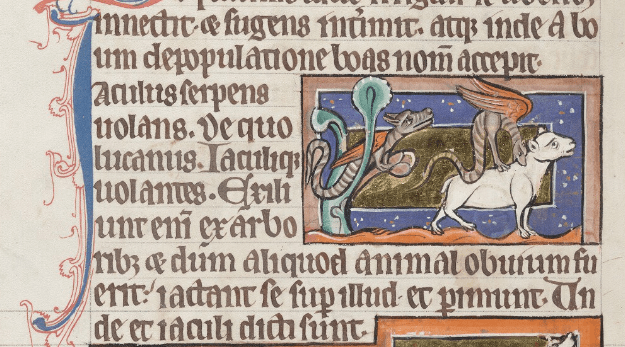 innectit. & sugens intimit. atq; inde a bo
um depopulatione boas nom̄ accepit.
Iaculus serpens
uolans. De quo
lucanus. Iaculiq;
uolantes. Exili
unt eni ex arbo
rib; & dum aliquod animal obuium fu
erit: iactant se sup illud et pimunt. Un
de et iaculi dicti sunt.